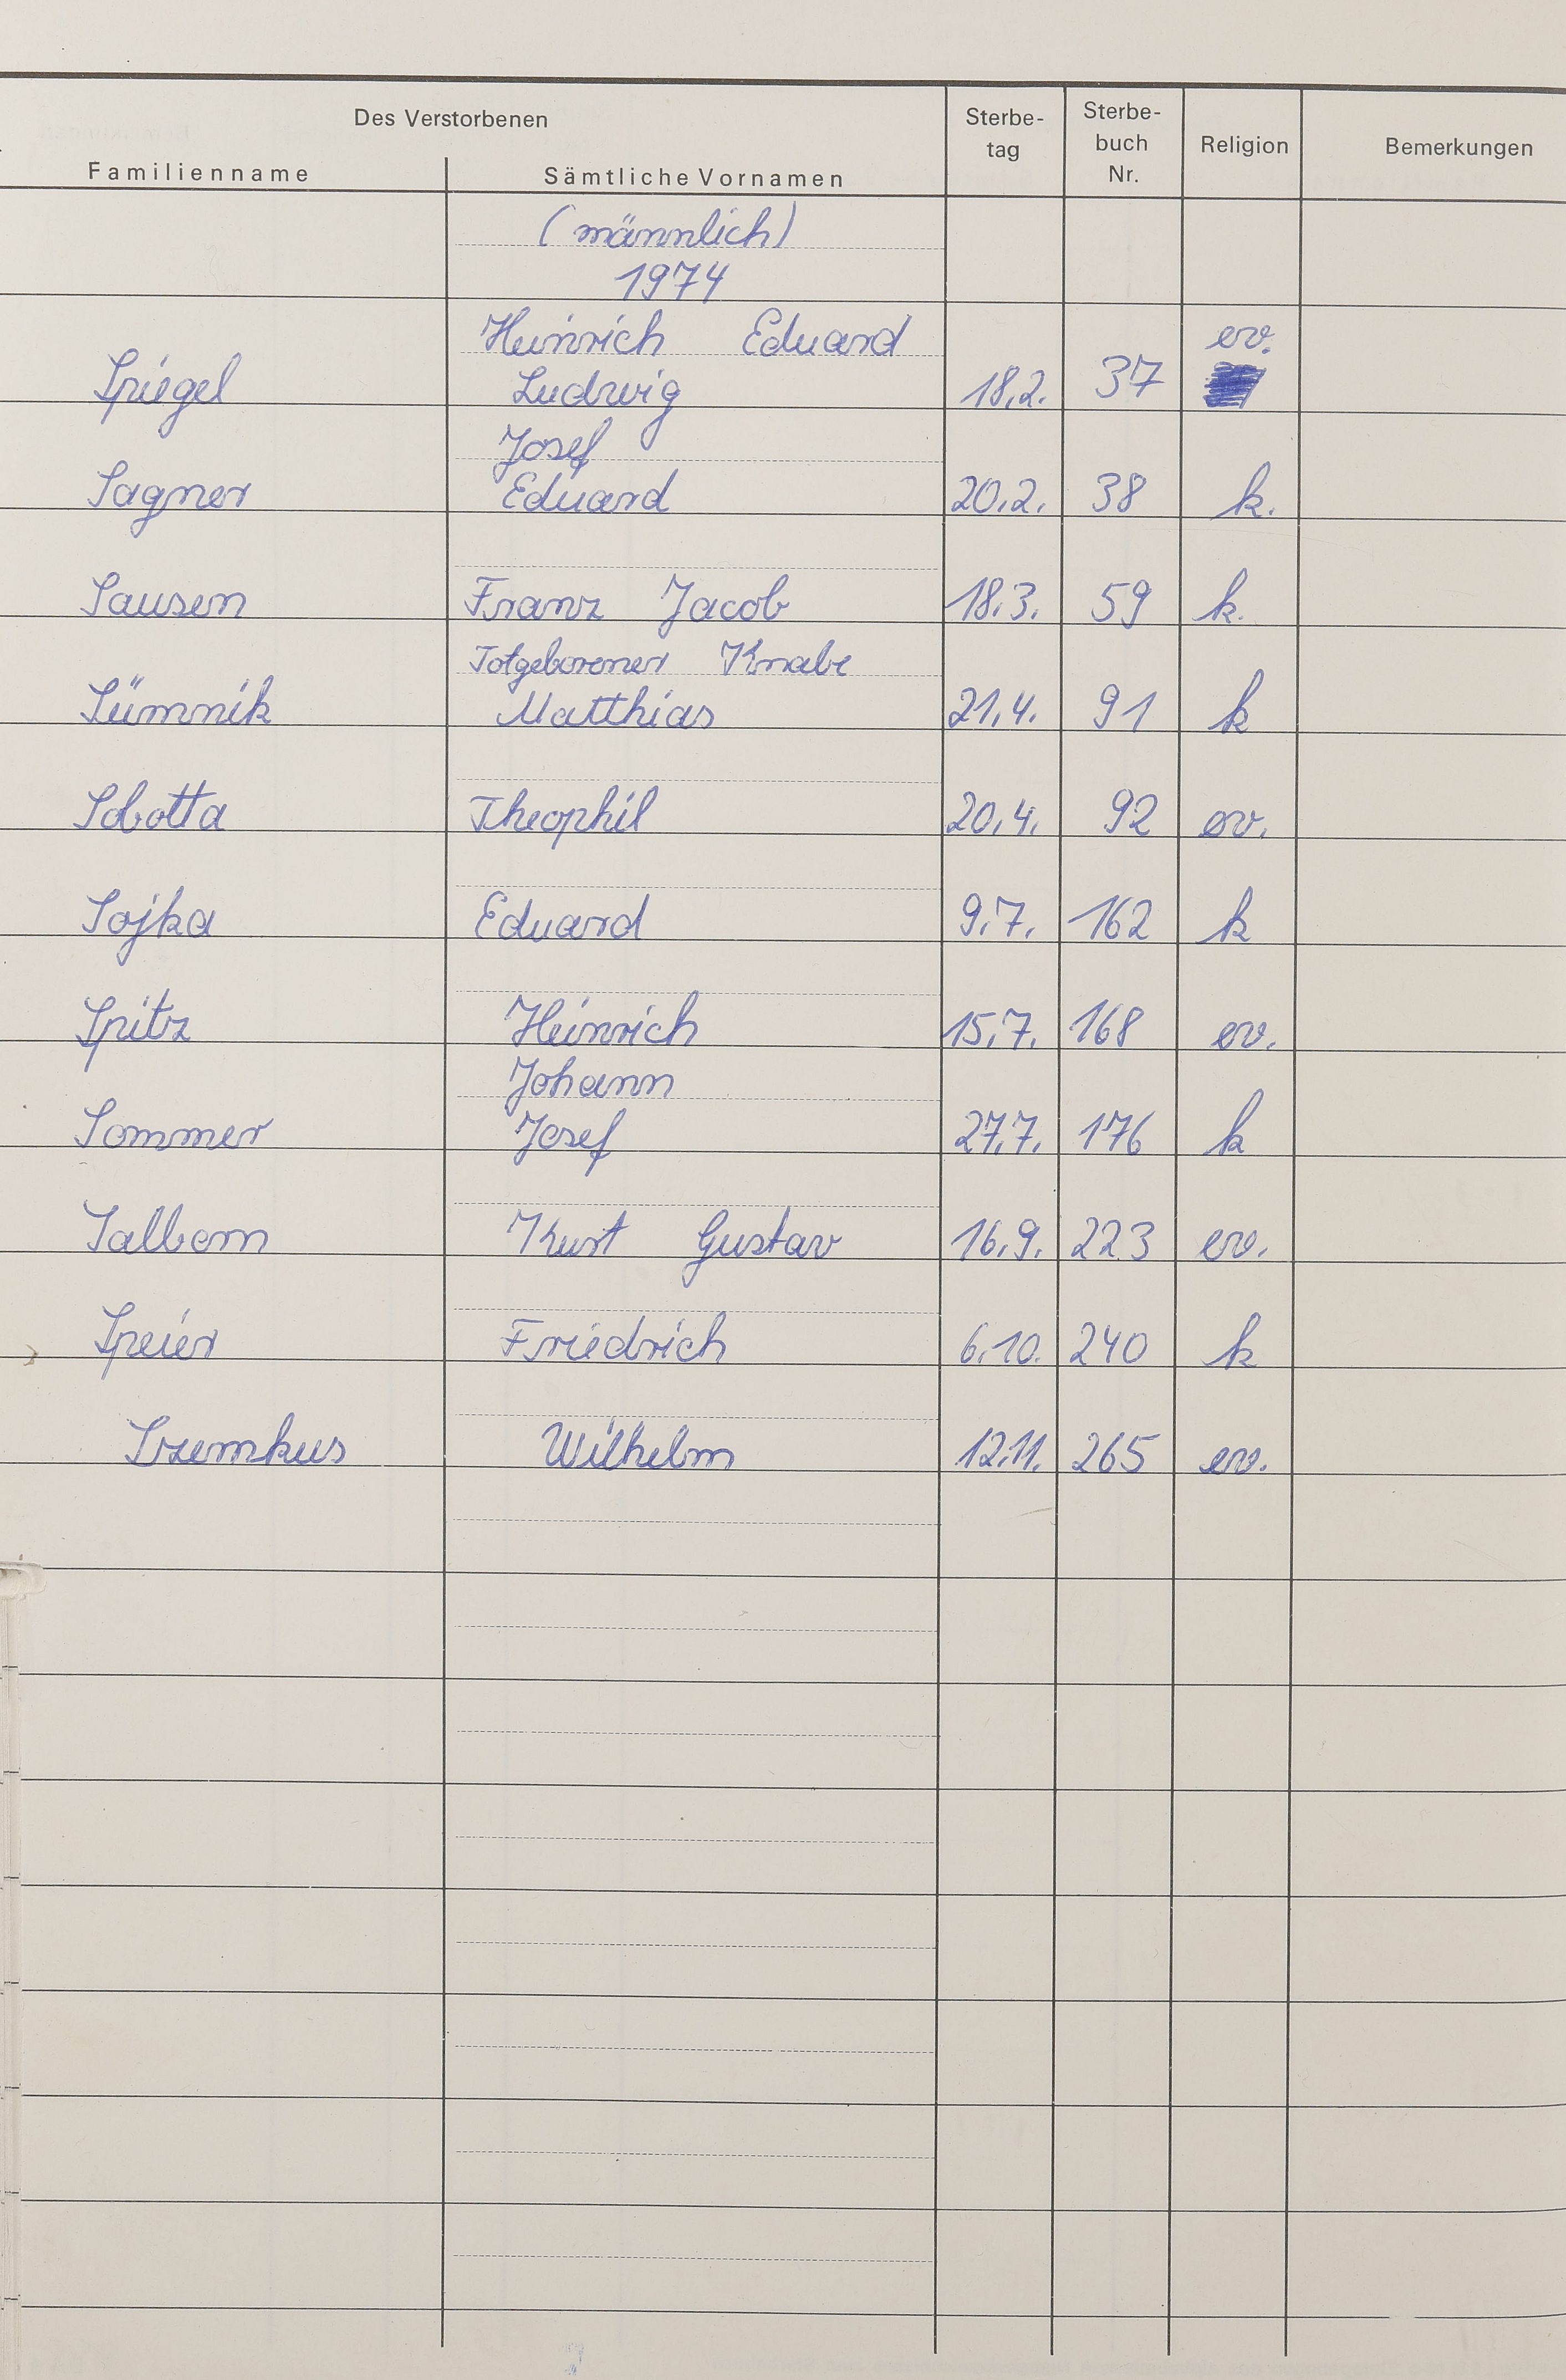 Des Verstorbenen
Familienname Sämtliche Vornamen Sterbe-tag Sterbe-buch Nr. Religion Bemerkungen
(männlich)
1974
Heinrich Eduard ev.
Spiegel Ludwig 18.2. 37
Josef
Sagner Eduard 20.2. 38 k.
Sausen Franz Jacob 18.3. 59 k.
Totgeborener Knabe
Sümnik Matthias 21.4. 91 k
Sobotta Theophil 20.4. 92 ev.
Sojka Eduard 9.7. 162 k
Spitz Heinrich 15.7. 168 ev.
Johann
Sommer Josef 27.7. 176 k
Salbem Kurt Gustav 16.9. 223 ev.
Speier Friedrich 6.10. 240 k
Szemkus Wilhelm 12.11. 265 ev.